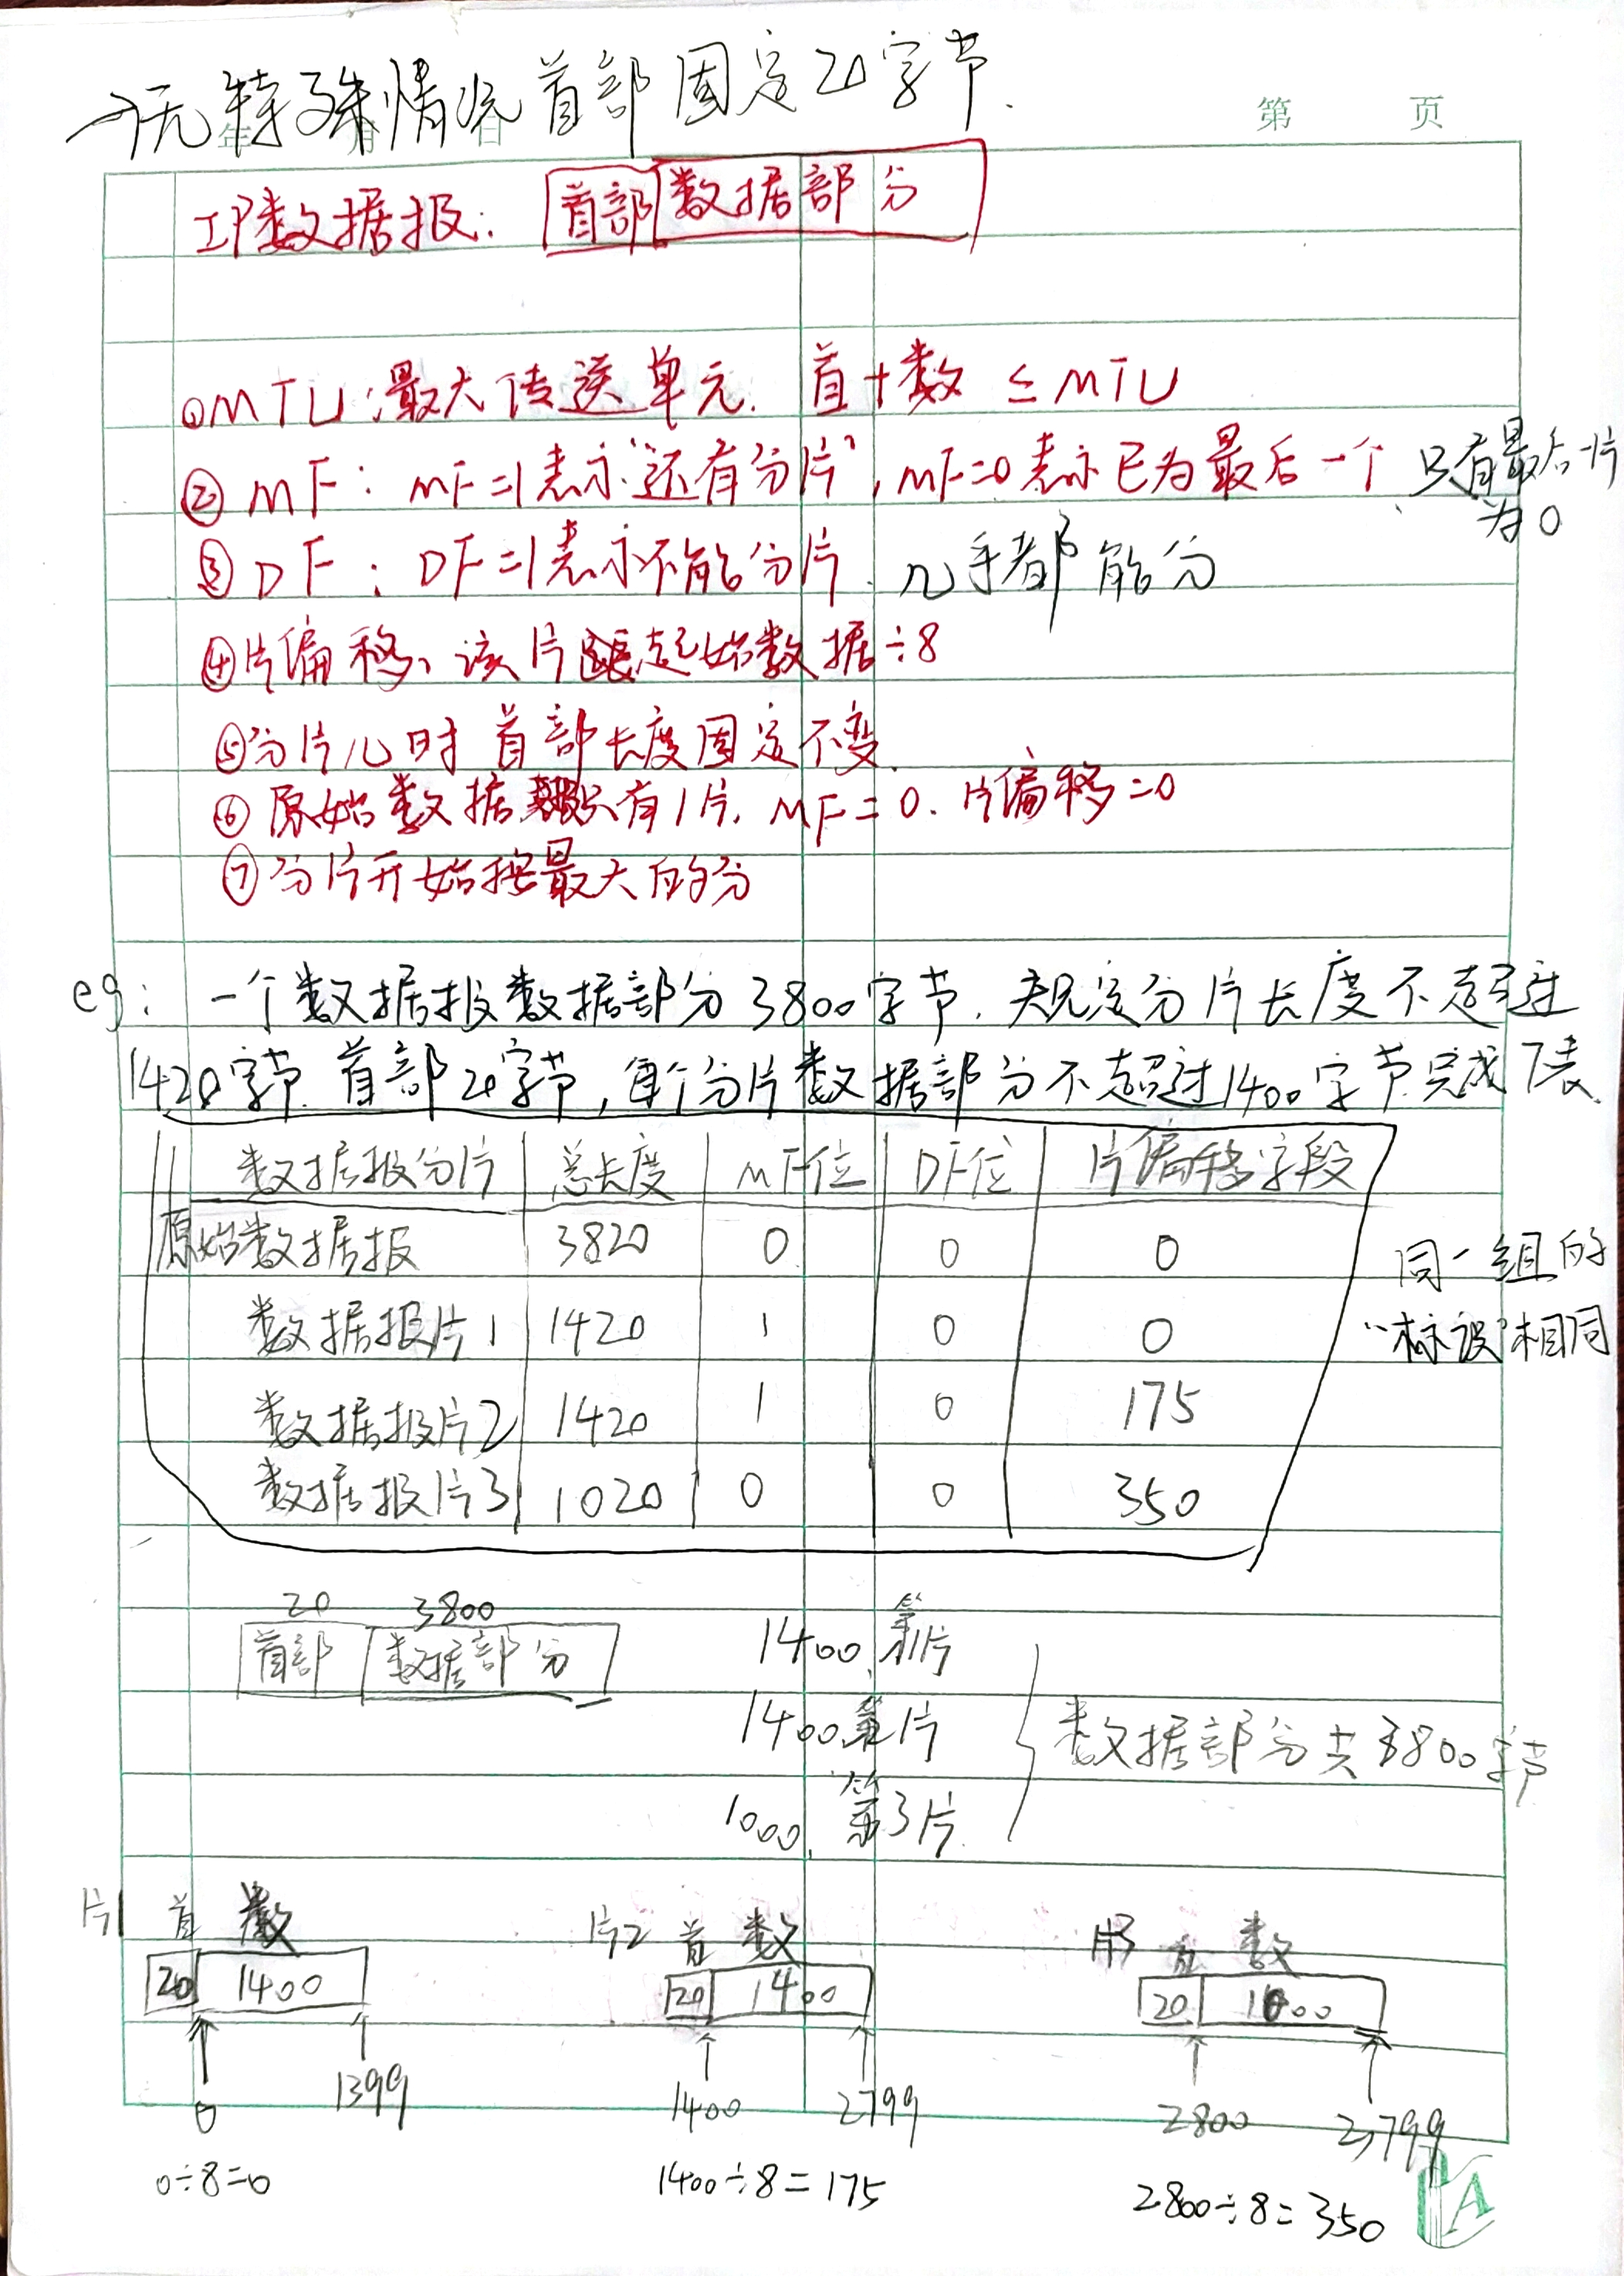 →无特殊情况首部固定20字节.
年 月 日 第 页
IP数据报: 首部 数据部分
①MTU:最大传送单元. 首+数 ≤MTU
②MF: MF=1表示"还有分片",MF=0表示已为最后一个 只有最后一片
为0
③DF: DF=1表示不能分片. 几乎都能分
④片偏移、该片起始数据÷8
⑤分片几时 首部长度固定不变.
⑥原始数据只有1片, MF=0. 片偏移=0
⑦分片开始按最大的分
eg: 一个数据报数据部分3800字节. 规定分片长度不超过
1420字节.首部20字节,每个分片数据部分不超过1400字节.完成下表.
数据报分片 总长度 MF位 DF位 片偏移字段
原始数据报 3820 0 0 0 同一组的
数据报片1 1420 1 0 0 "标识"相同
数据报片2 1420 1 0 175
数据报片3 1020 0 0 350
20 3800
首部 数据部分 1400 第1片
1400 第2片 数据部分共3800字节
1000 第3片
片1 首 数 片2 首 数 片3 首 数
20 1400 20 1400 20 1000
0 1399 1400 2799 2800 3799
0÷8=0 1400÷8=175 2800÷8=350